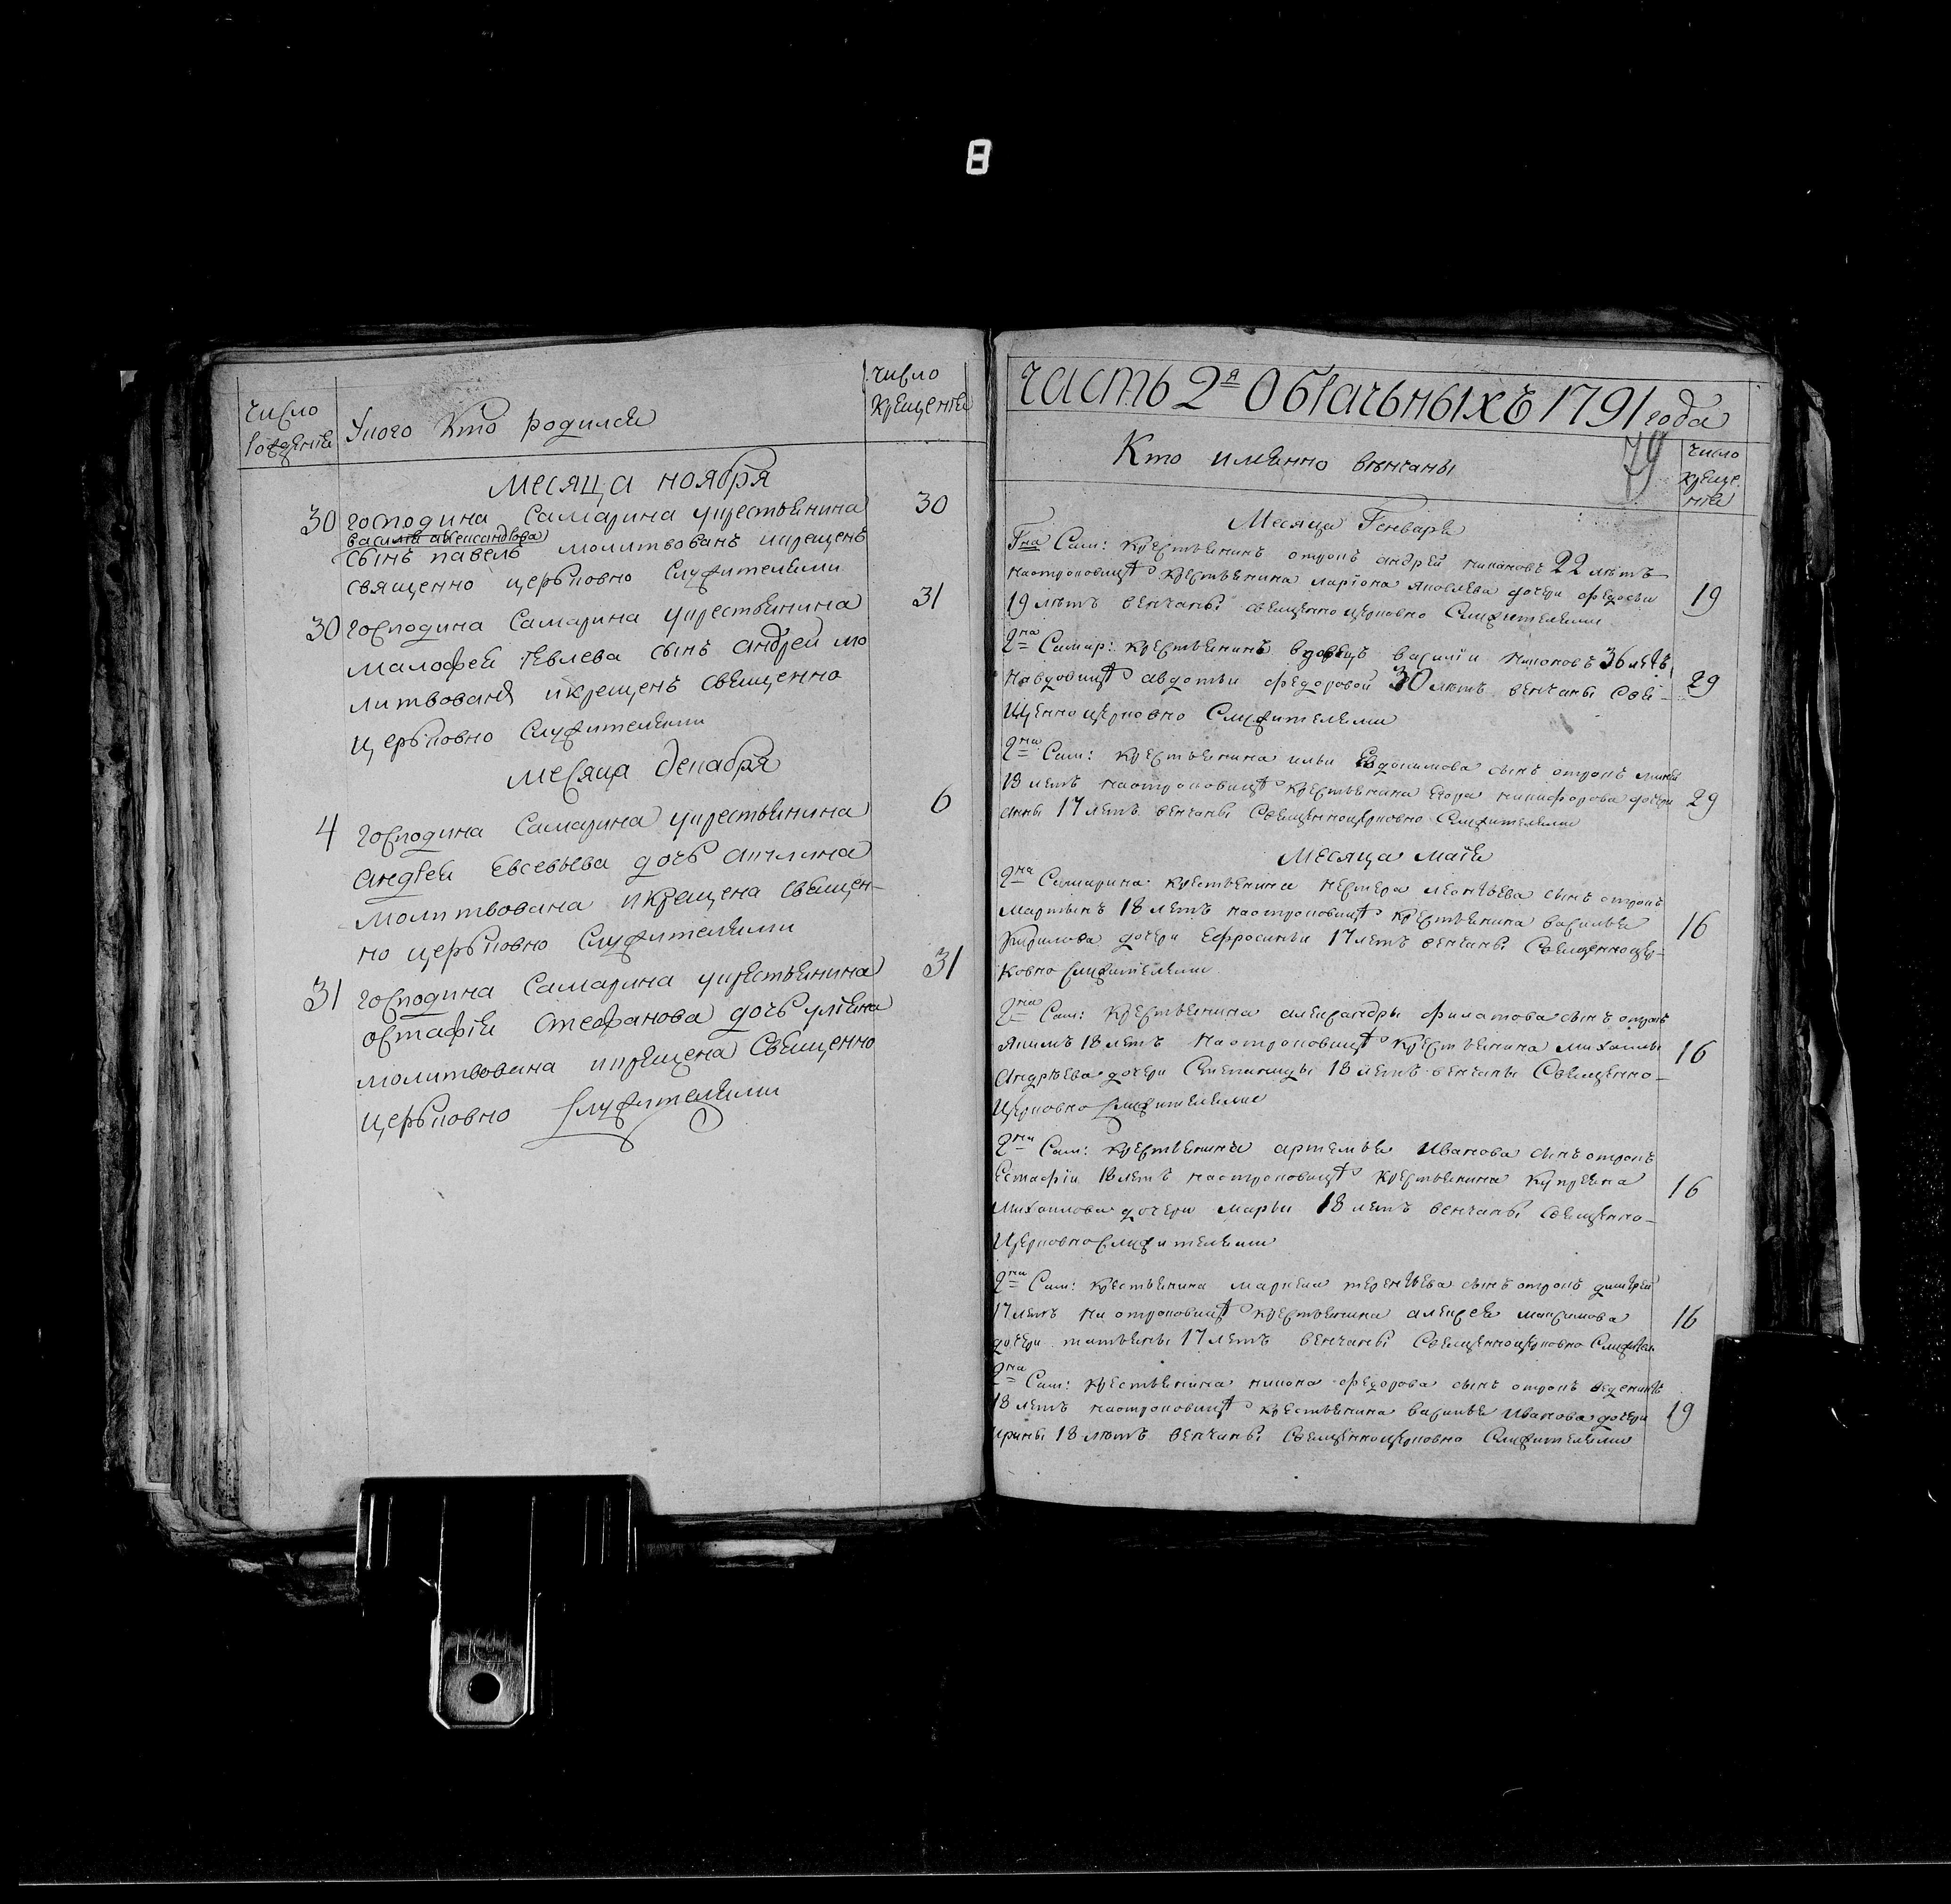 8
число рождения
У кого кто родился
число крещения
месяца ноября
30 господина Самарина у крестьянина 30
василия александрова
сынъ павелъ молитвованъ и крещенъ
священно церьковно служителями
30 господина Самарина у крестьянина 31
малофея сынъ андрей мо
литвованъ и крещенъ священно
церьковно служителями
месяца декабря
4 господина Самарина у крестьянина 6
андрея евсевьева дочь акилина
молитвована и крещена священ-
но церьковно служителями
31 господина Самарина у крестьянина 31
остафия стефанова дочь улияна
молитвована и крещена священно
церьковно служителями
часть 2я О брачьныхъ 1791 года
79
Кто имянно венчаны
число крещения
Месяца Генваря
Гна Сам: крестьянинъ отрокъ андрей никоновъ 22 летъ
на отроковице крестьянина лариона яковлева дочери федосьи 19
19 летъ венчаны священно церковно служителями
Гна Самар: крестьянинъ вдовецъ василии никоновъ 36 летъ
на вдовице авдотьи федоровой 30 летъ венчаны свя- 29
щенно церковно служителями
Гна Сам: крестьянина ильи Евдокимова сынъ отрокъ
18 летъ на отроковице крестьянина егора никифорова дочери 29
анны 17 летъ венчаны священно церковно служителями
Месяца маия
Гна Самарина крестьянина нестера леонтьева сынъ отрокъ
мартынъ 18 летъ на отроковице крестьянина василья 16
кирилова дочери ефросиньи 17 летъ венчаны священно цер-
ковно служителями
Гна Сам: крестьянина александры филатова сынъ отрокъ
якимъ 18 летъ на отроковице крестьянина михаилы 16
андреева дочери степаниды 18 летъ венчаны священно-
церковно служителями
Гна Сам: крестьянина артемья иванова сынъ отрокъ
естафiи 18 летъ на отроковице крестьянина куприяна 16
михаилова дочери марьи 18 летъ венчаны священно-
церковно служителями
Гна Сам: крестьянина маркела терентьева сынъ отрокъ димитрей
17 летъ на отроковице крестьянина алексея максимова 16
дочери татьяны 17 летъ венчаны священно церковно служители
Гна Сам: крестьянина никона федорова сынъ отрокъ
18 летъ на отроковице крестьянина василья иванова дочери 19
ирины 18 летъ венчаны священно церковно служителями